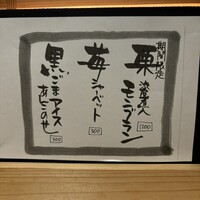 期間限定
栗
渋皮入
モンブラン
1200
苺
シャーベット
500
黒ごまアイス
あとのせ
500